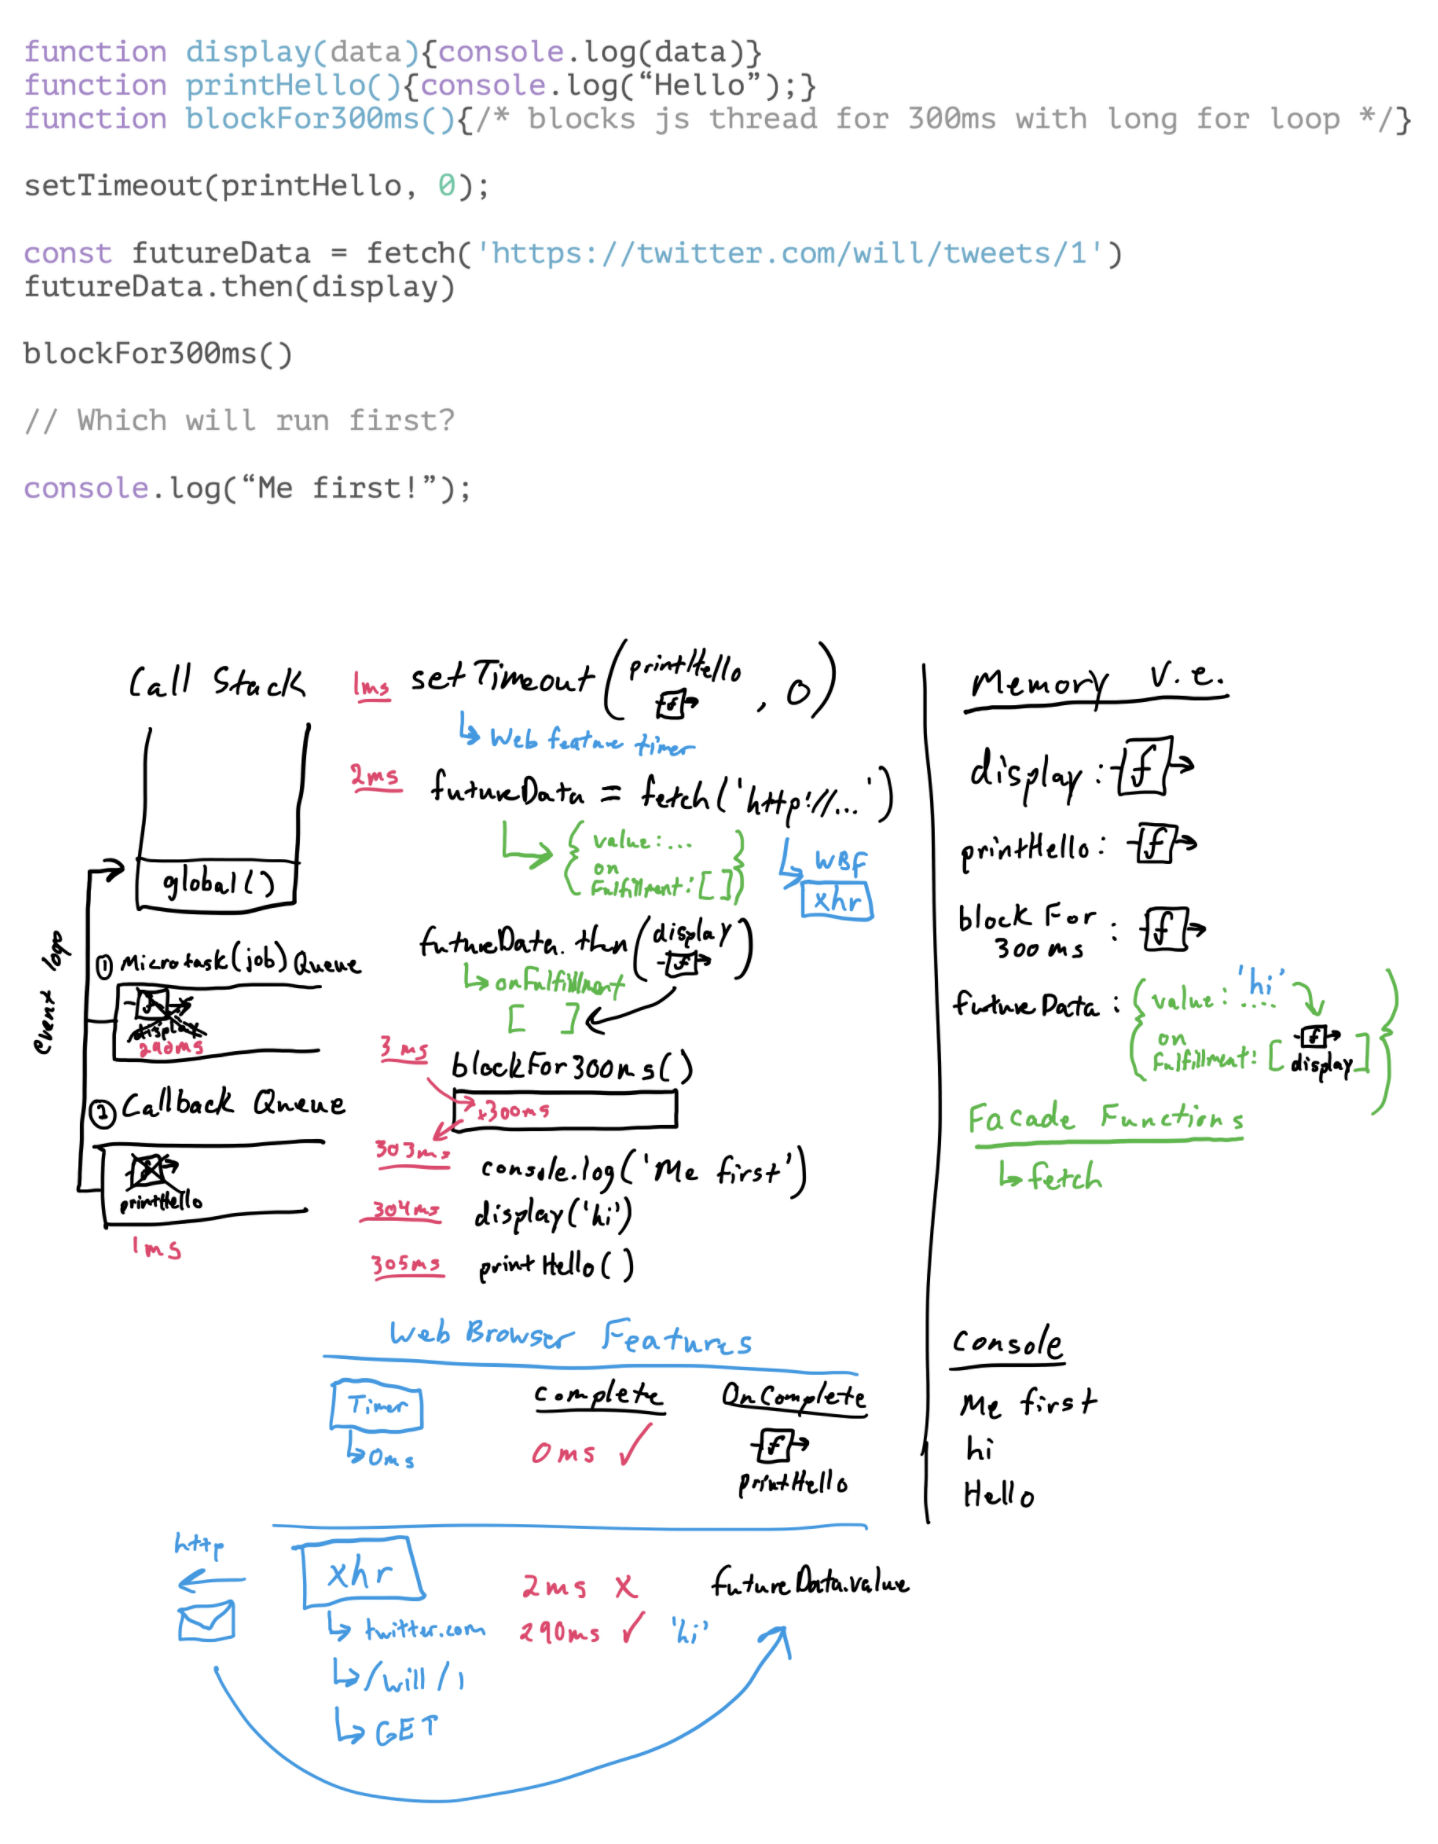 function display(data){console.log(data)}
function printHello(){console.log(“Hello”);}
function blockFor300ms(){/* blocks js thread for 300ms with long for loop */}
setTimeout(printHello, 0);
const futureData = fetch('https://twitter.com/will/tweets/1')
futureData.then(display)
blockFor300ms()
// Which will run first?
console.log(“Me first!”);
Call Stack
global()
event loop
① Microtask(job) Queue
f
display
290ms
② Callback Queue
f
printHello
1ms
1ms setTimeout(printHello, 0)
f
Web feature timer
2ms futureData = fetch('http://...')
{ value:...
on
fulfillment: [ ] }
WBF
xhr
futureData.then(display)
f
onFulfillment
[ ]
3ms blockFor300ms()
+300ms
303ms console.log('Me first')
304ms display('hi')
305ms printHello()
Memory V.E.
display: f
printHello: f
block For
300ms : f
futureData: { value: .... 'hi'
on
fulfillment: [ f display ] }
Facade Functions
fetch
Console
Me first
hi
Hello
Web Browser Features
Timer complete OnComplete
0ms 0ms ✓ f
printHello
http
xhr 2ms x futureData.value
twitter.com 290ms ✓ 'hi'
/will/1
GET